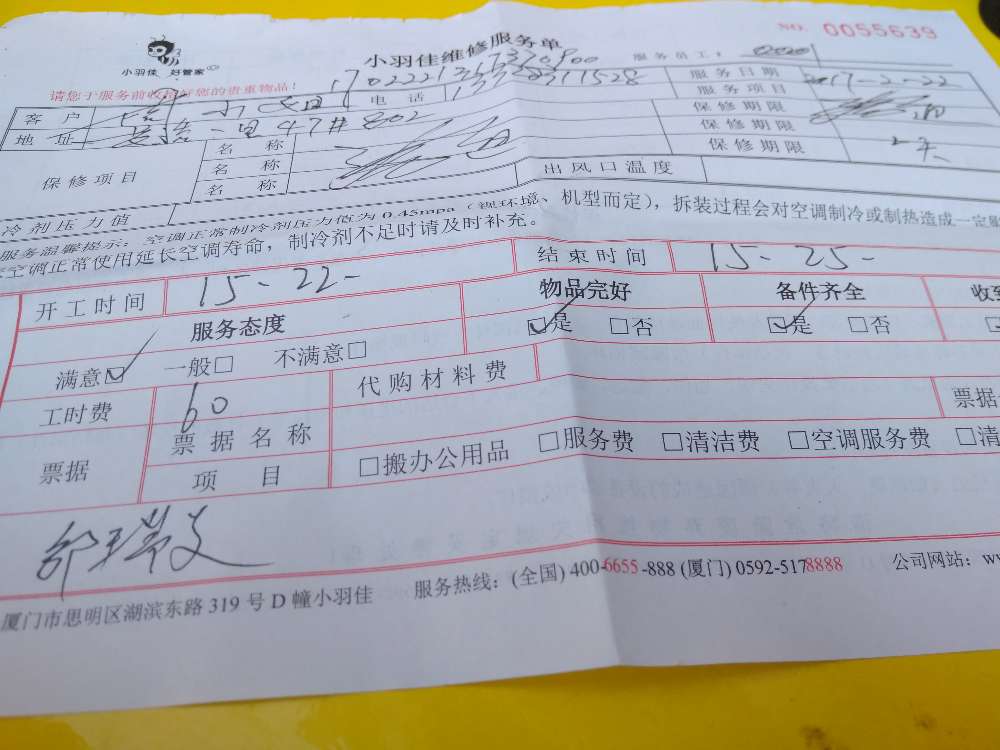 NO. 0055639
小羽佳维修服务单
小羽佳 好管家
服务员工:
请您于服务前收拾好您的贵重物品!
17022213173320900
服务日期 2017-2-22
客户
电话 13332311528
服务项目
地址
47# 802
保修期限
保修项目
名称
保修期限
名称
保修期限
名称
出风口温度
冷剂压力值
服务温馨提示:空调正常制冷制剂压力值为0.45mpa(视环境、机型而定),拆装过程会对空调制冷或制热造成一定
空调正常使用延长空调寿命,制冷剂不足时请及时补充。
开工时间 15-22-
结束时间 15-25-
服务态度
物品完好
备件齐全
收到
满意☑ 一般□ 不满意□
☑是 □否
☑是 □否
工时费 60
代购材料费
票据
票据名称
票据
项目
□搬办公用品 □服务费 □清洁费 □空调服务费 □清
厦门市思明区湖滨东路 319 号 D 幢小羽佳
服务热线:(全国) 400-6655-888 (厦门) 0592-5178888
公司网站: